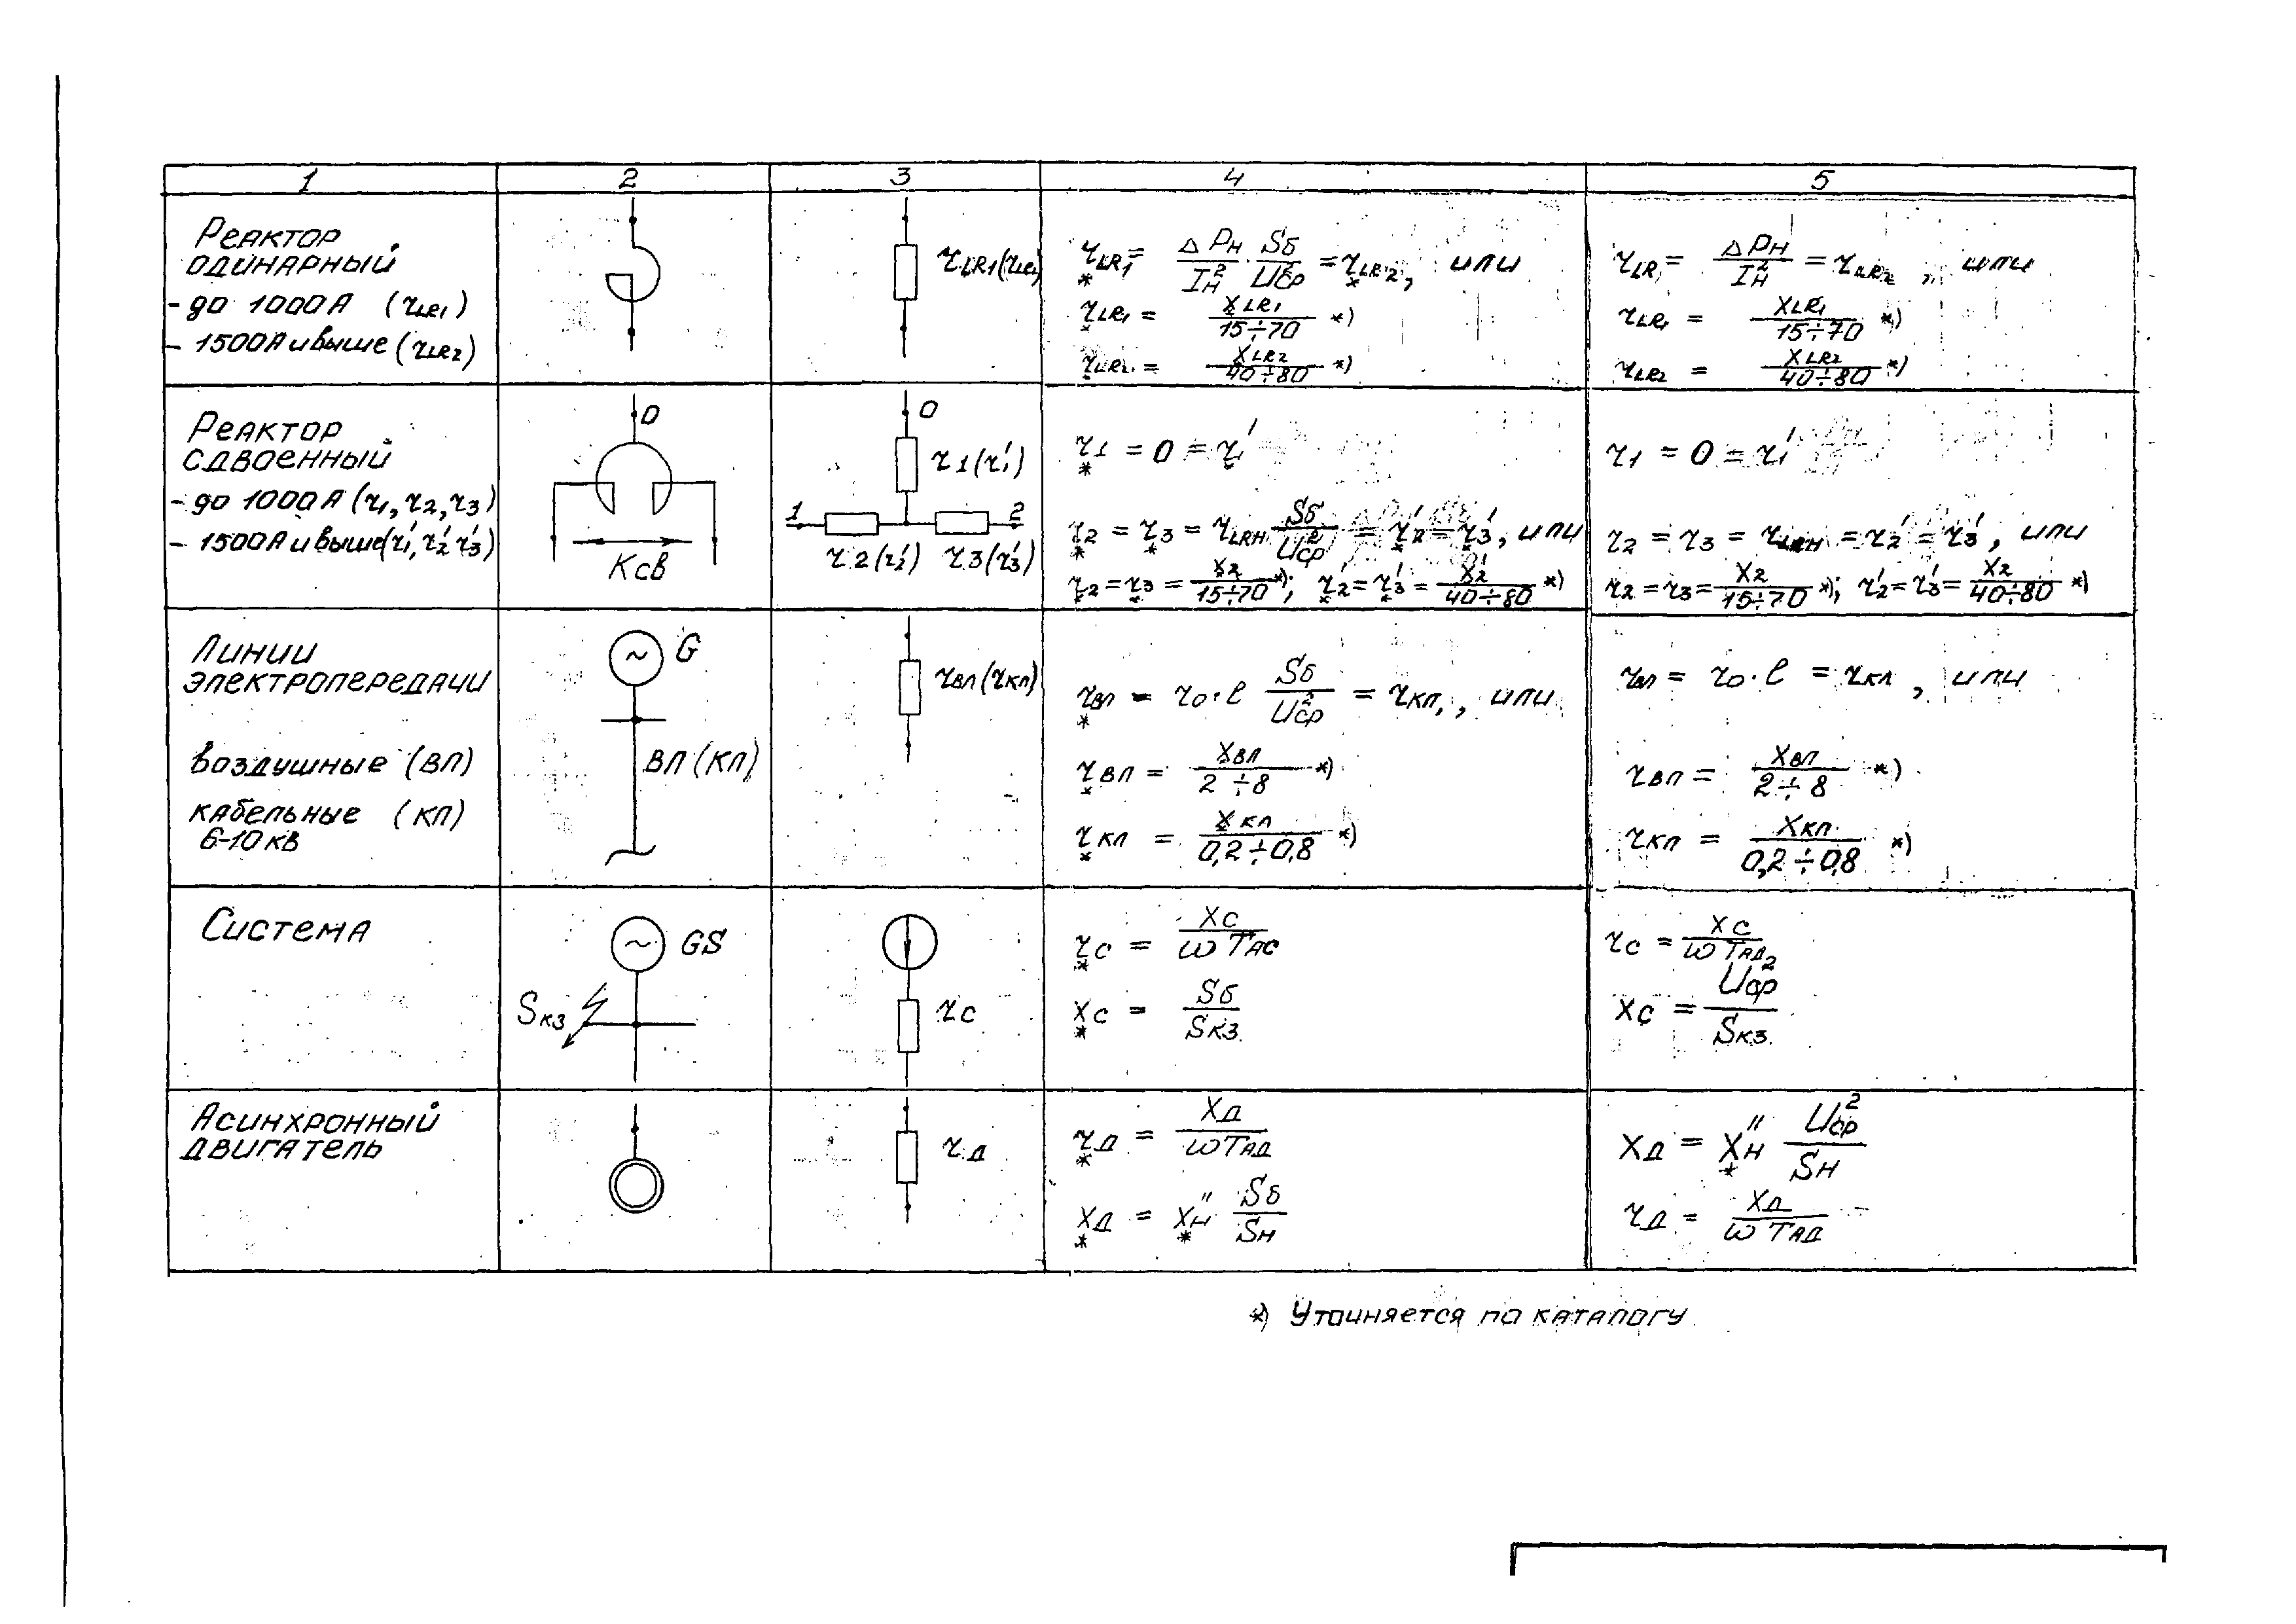 1 2 3 4 5
Реактор
одинарный
- до 1000А (r_LR1)
- 1500А и выше (r_LR2)
r_LR1(r_LR2)
r*_LR1 = ΔPн/Iн² · Sб/Uср² = r*_LR2, или
r*_LR1 = x*_LR1/15÷70 *)
r*_LR2 = x_LR2/40÷80 *)
r_LR1 = ΔPн/Iн² = r_LR2, или
r_LR1 = x_LR1/15÷70 *)
r_LR2 = x_LR2/40÷80 *)
Реактор
сдвоенный
- до 1000А (r1, r2, r3)
- 1500А и выше (r1', r2' r3')
0
Kсв
0
r1(r1')
1 2
r2(r2') r3(r3')
r*1 = 0 = r*1'
r*2 = r*3 = r_LRН Sб/Uср² = r*2' = r*3', или
r*2 = r*3 = x*2/15÷70 *); r*2' = r*3' = x2'/40÷80 *)
r1 = 0 = r1'
r2 = r3 = r_LRН = r2' = r3', или
r2 = r3 = x2/15÷70 *); r2' = r3' = x2/40÷80 *)
Линии
электропередачи
воздушные (ВЛ)
кабельные (КЛ)
6-10кВ
G
ВЛ (КЛ)
rВЛ(rКЛ)
r*ВЛ = r0·l Sб/Uср² = rКЛ, или
r*ВЛ = x*ВЛ/2÷8 *)
r*КЛ = x*КЛ/0,2÷0,8 *)
rВЛ = r0·l = rКЛ, или
rВЛ = xВЛ/2÷8 *)
rКЛ = xКЛ/0,2÷0,8 *)
Система
GS
Sкз
rс
r*с = xс/ωTас
x*с = Sб/Sкз
rс = xс/ωTад
xс = Uср²/Sкз
Асинхронный
двигатель
rд
r*д = xд/ωTад
x*д = x*н" Sб/Sн
xд = x*н" Uср²/Sн
rд = xд/ωTад
*) Уточняется по каталогу